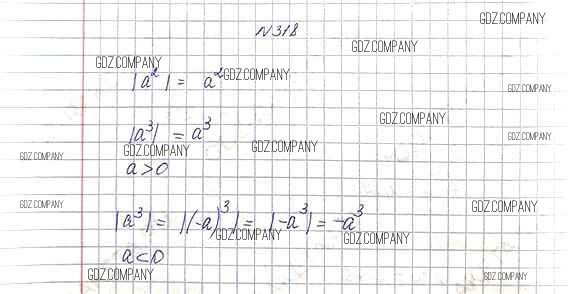 N 318
GDZ.COMPANY
GDZ.COMPANY
GDZ.COMPANY
|a²| = a²
GDZ.COMPANY
GDZ.COMPANY
GDZ.COMPANY
|a³| = a³
GDZ.COMPANY
GDZ.COMPANY
GDZ.COMPANY
GDZ.COMPANY
a > 0
GDZ.COMPANY
GDZ.COMPANY
|a³| = |(-a)³| = |-a³| = -a³
GDZ.COMPANY
GDZ.COMPANY
a < 0
GDZ.COMPANY
GDZ.COMPANY